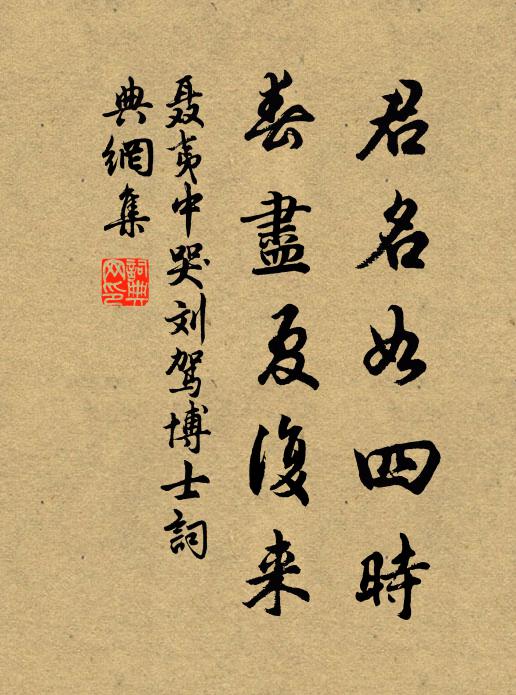 君名如四時
春盡夏復来
聂夷中哭刘驾博士詞
典網集
詞典
网印